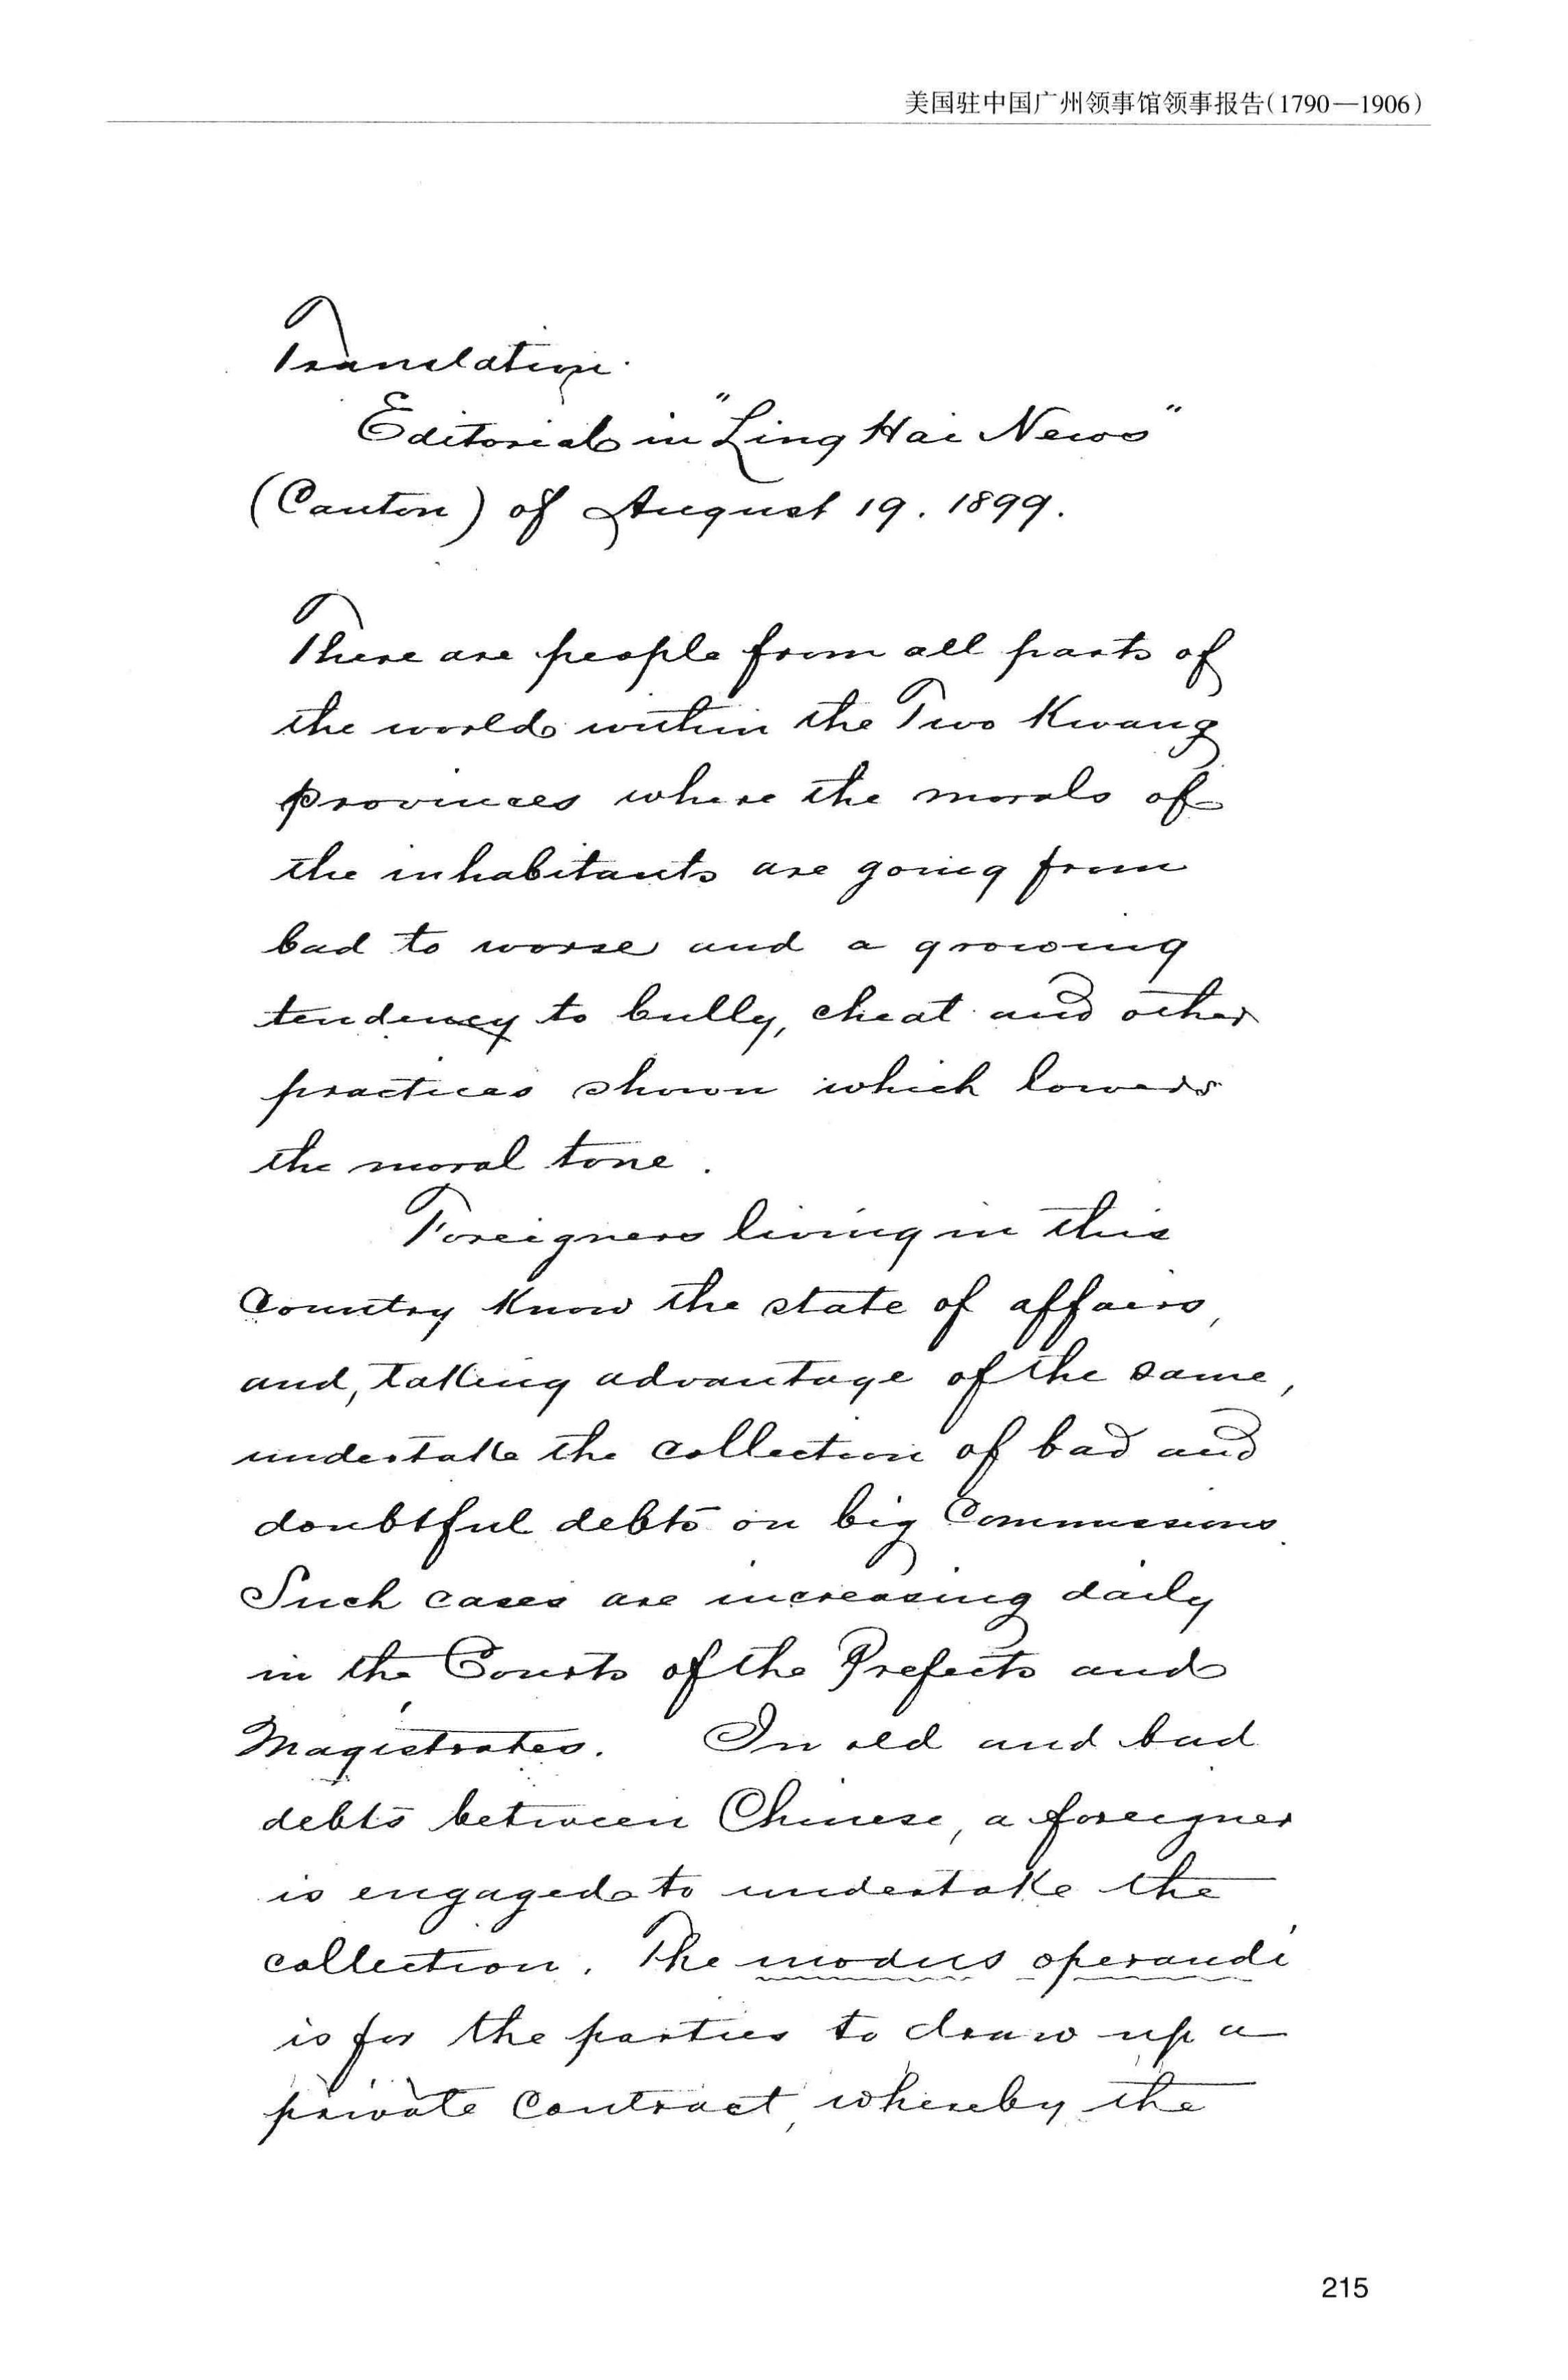 美国驻中国广州领事馆领事报告(1790—1906)
Translation.
Editorial in "Ling Hai News"
(Canton) of August 19. 1899.
There are people from all parts of
the world within the Two Kwang
provinces where the morals of
the inhabitants are going from
bad to worse and a growing
tendency to bully, cheat and other
practices shown which lowers
the moral tone.
Foreigners living in this
Country know the state of affairs,
and, taking advantage of the same,
undertake the collection of bad and
doubtful debts on big Commissions.
Such cases are increasing daily
in the Courts of the Prefects and
Magistrates. In old and bad
debts between Chinese, a foreigner
is engaged to undertake the
collection. The modus operandi
is for the parties to draw up a
private Contract, whereby the
215